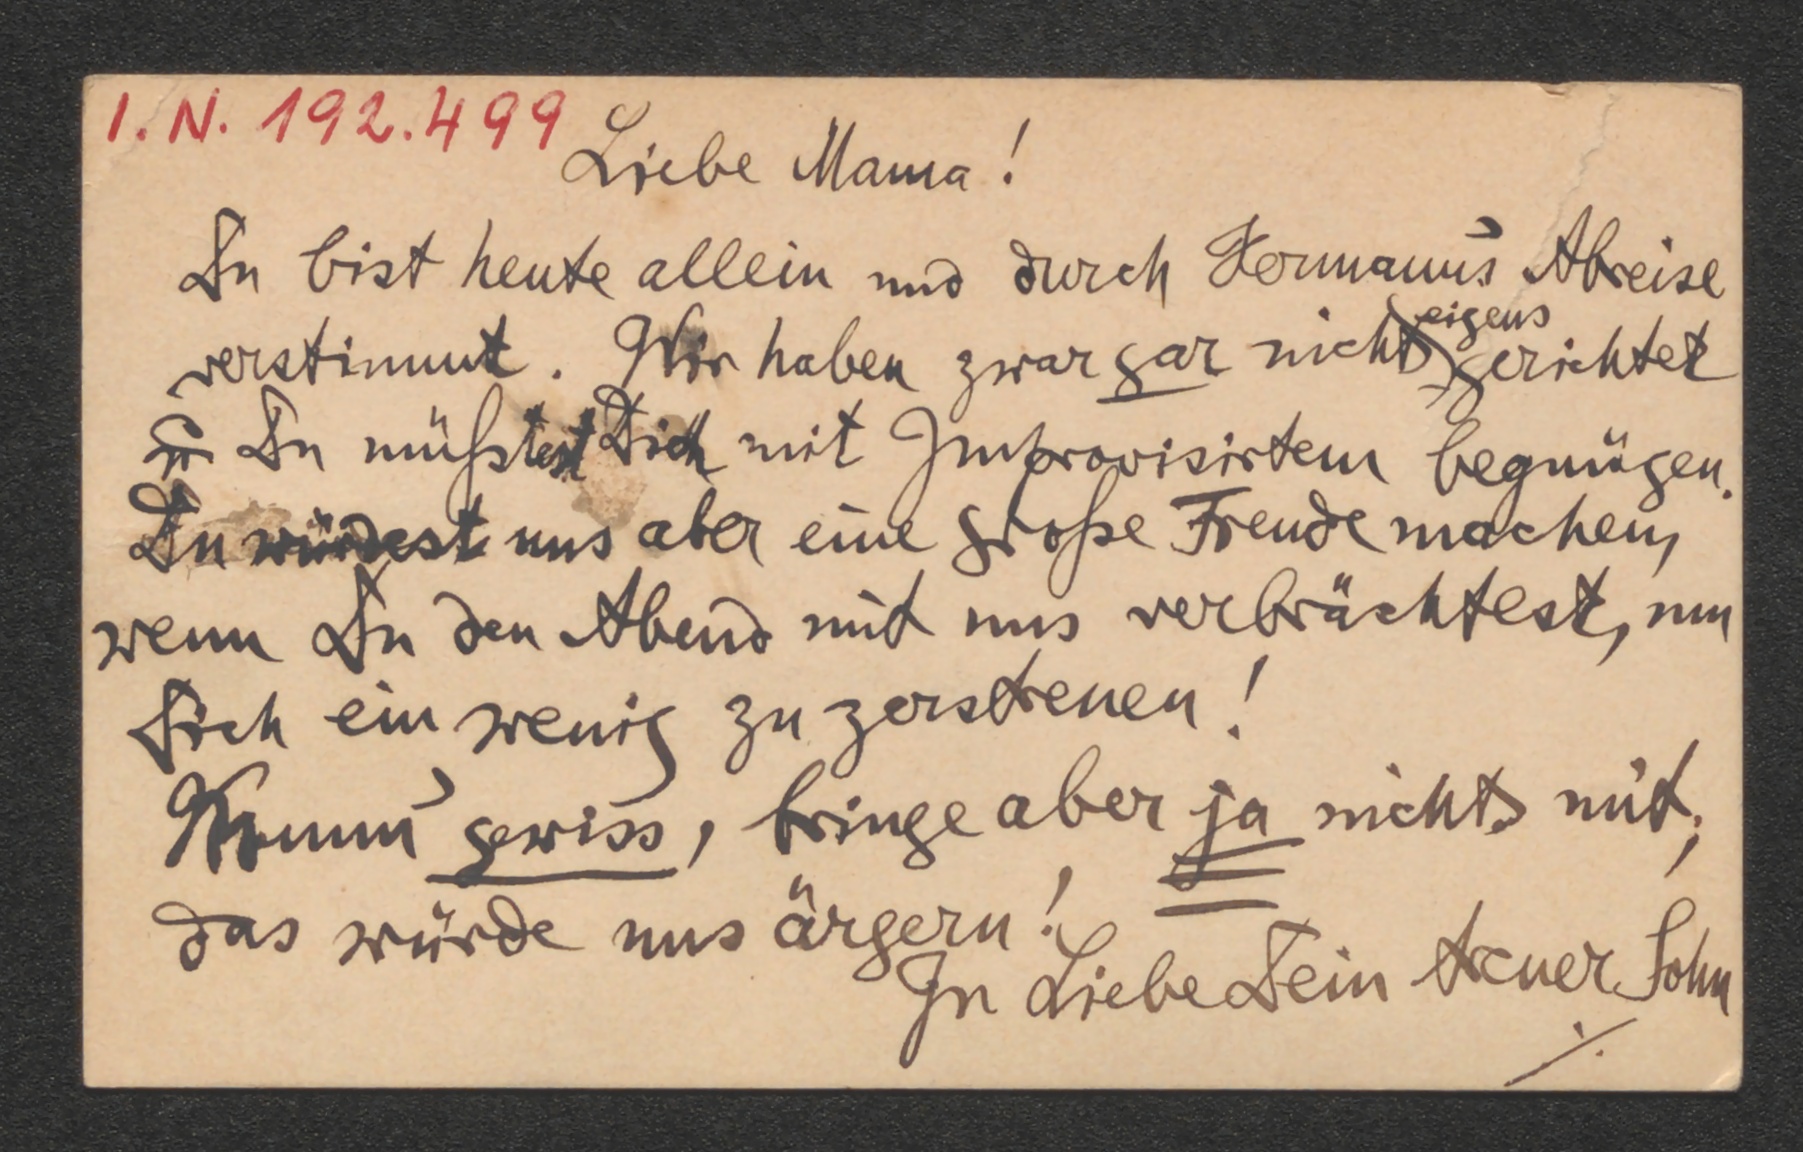 I.N. 192.499
Liebe Mama!
Du bist heute allein und durch Hermanns Abreise
verstimmt. Wir haben zwar gar nichts eigens gerichtet
u Du müßtest Dich mit Improvisirtem begnügen.
Du würdest uns aber eine große Freude machen,
wenn Du den Abend mit uns verbrächtest, um
Dich ein wenig zu zerstreuen!
Komm gewiss, bringe aber ja nichts mit;
das würde uns ärgern!
In Liebe Dein treuer Sohn